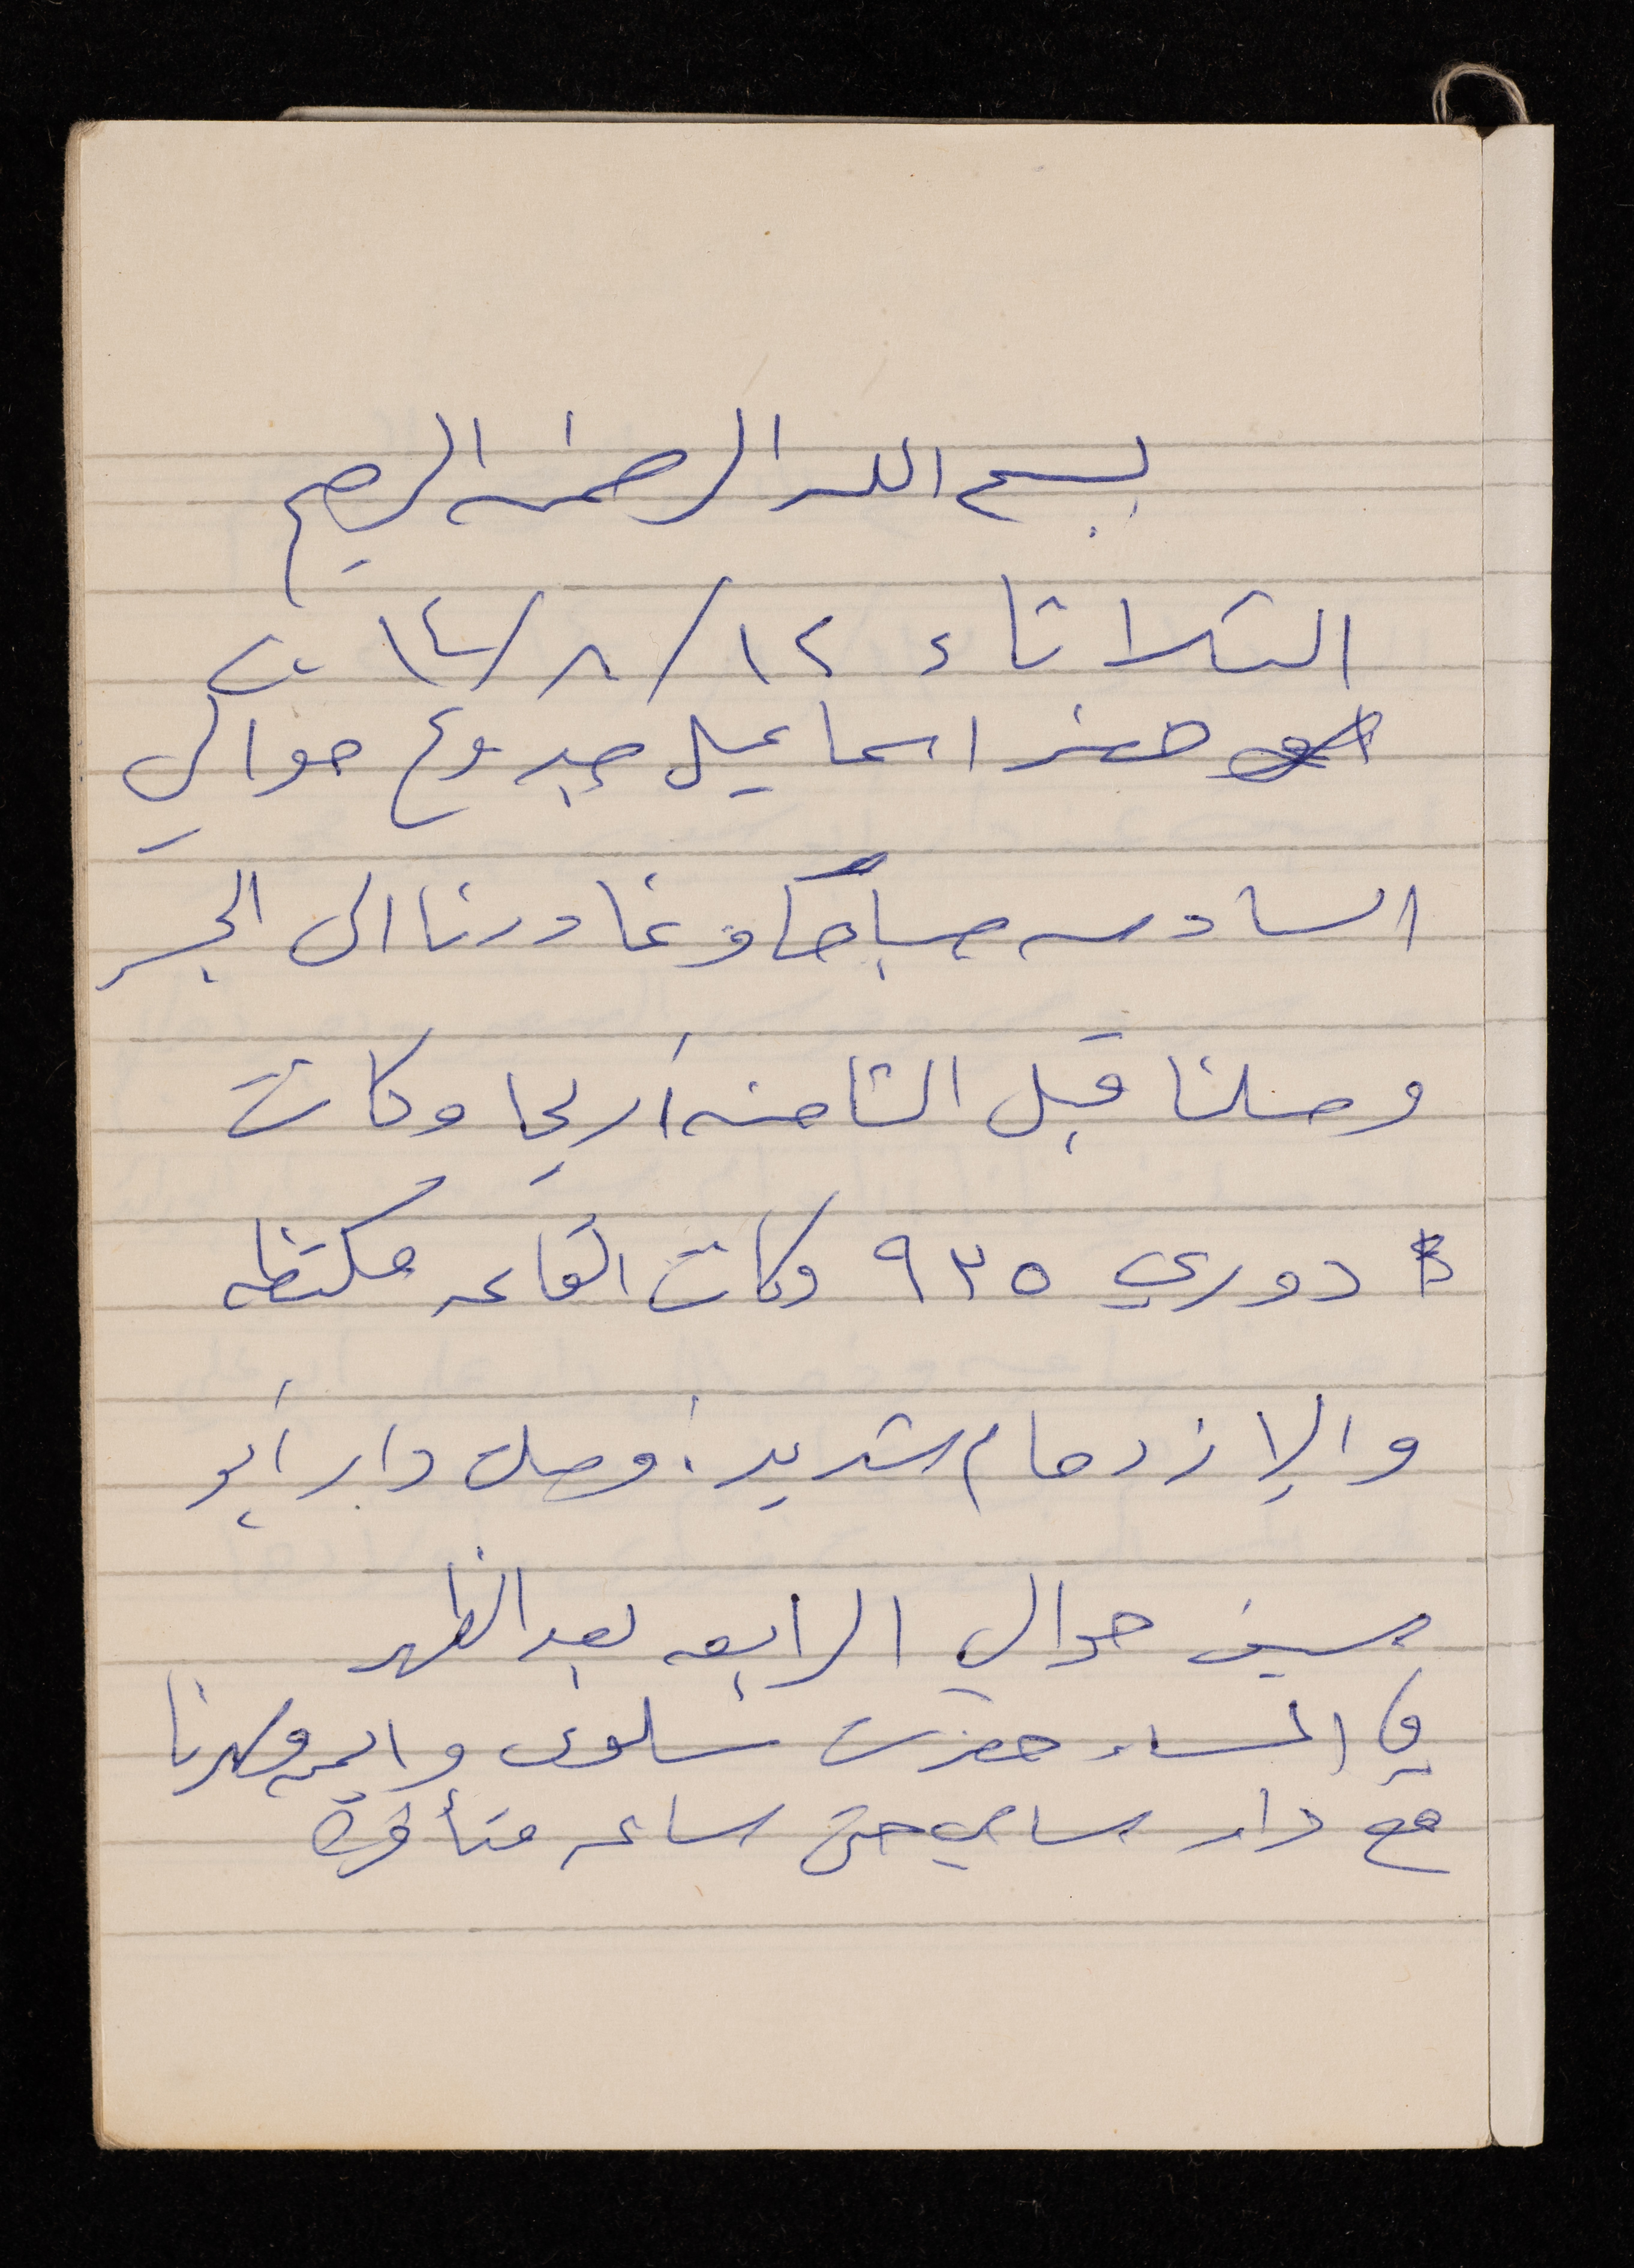 بسم الله الرحمن الرحيم
الثلاثاء ١٢/٨/١٤
حضر اسماعيل جدوع حوالي
السادسه صباحاً وغادرنا الى الجسر
وصلنا قبل الثامنه أريحا وكانت
دوري ٩٣٥ وكانت القاعه مكتظه
والإزدحام شديد . وصل دار أبو
سيف حوالي الرابعه بعد الظهر
في المساء حضرت سلوى وايمن وسهرنا
مع دار سامي حتى ساعه متأخرة